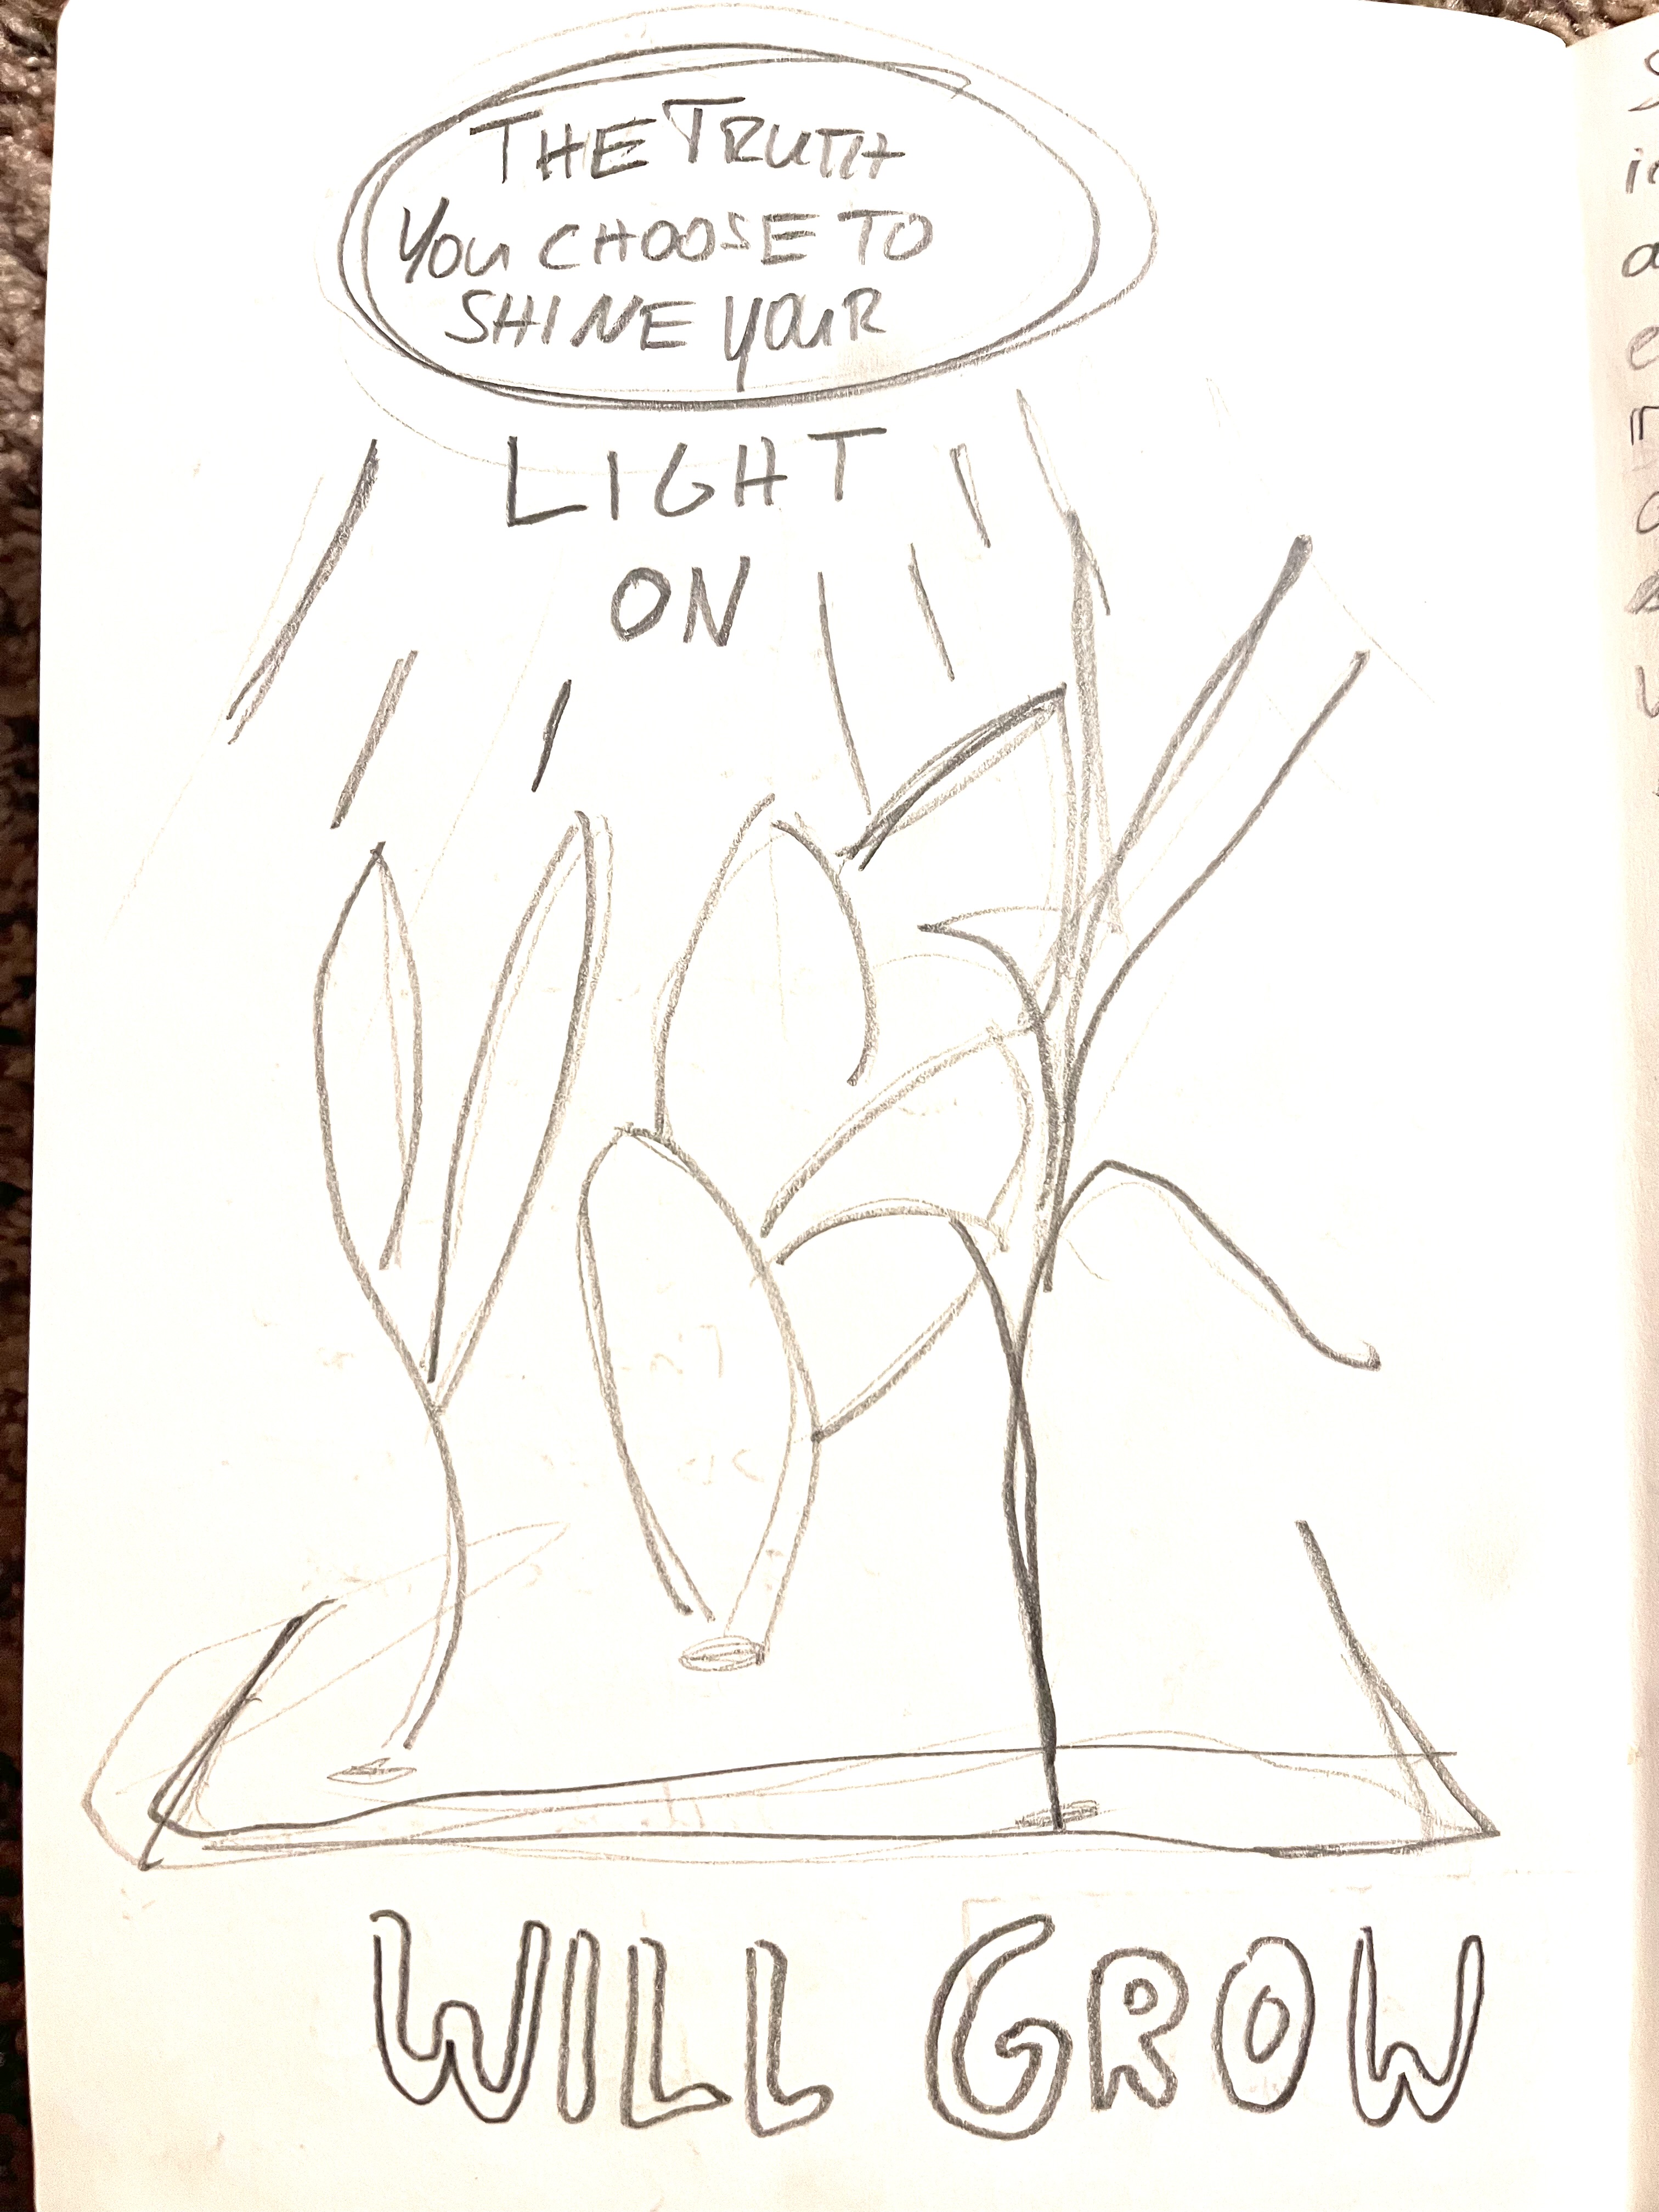 THE TRUTH
YOU CHOOSE TO
SHINE YOUR
LIGHT
ON
WILL GROW